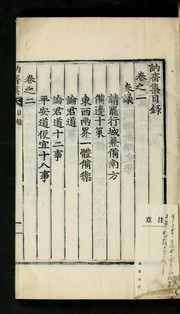 訥齋集目録
卷之一
奏議
請罷行城兼備南方
備邊十策
東西兩界一體備禦
論君道
論君道十二事
平安道便宜十八事
卷之二
訥齋集
目録
一